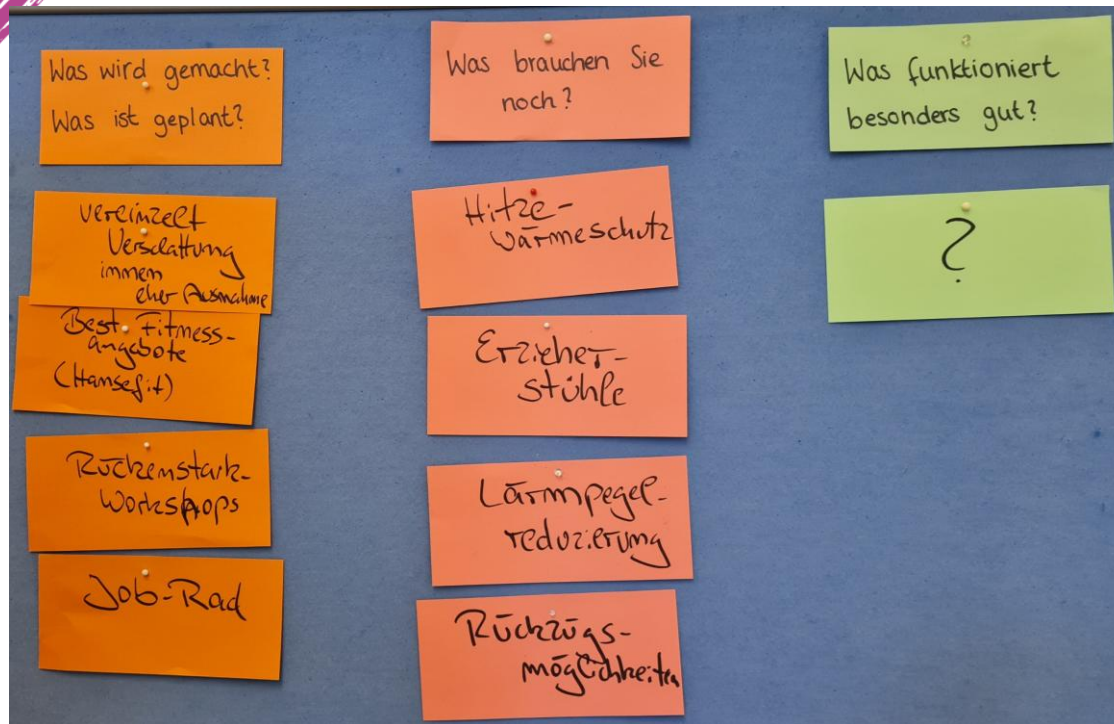 Was wird gemacht?
Was ist geplant?
vereinzelt
Verschattung
immen
eher Ausnahme
Best. Fitness-
angebote
(Hansefit)
Rückenstark-
Workshops
Job-Rad
Was brauchen Sie
noch?
Hitze-
wärmeschutz
Erzieher-
stühle
Lärmpegel-
reduzierung
Rückzugs-
möglichkeiten
Was funktioniert
besonders gut?
?